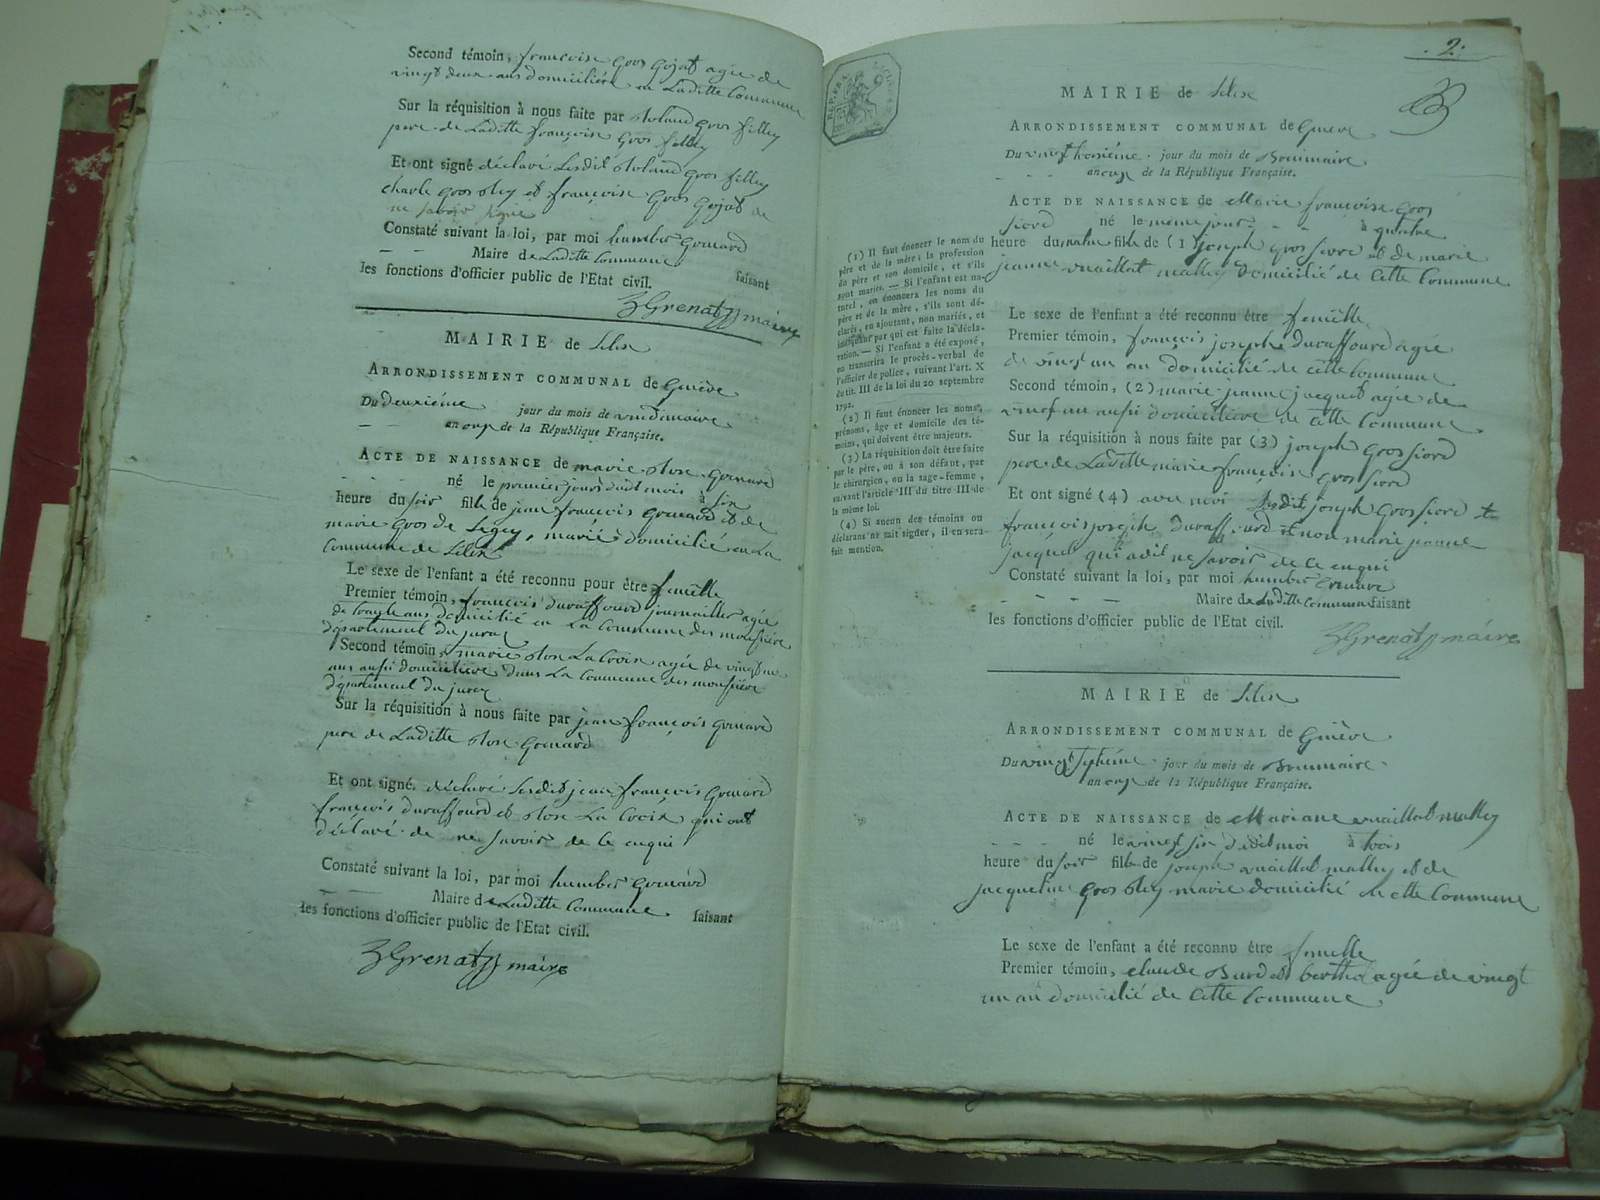 Second témoin, françoise gros gojat agée de
vingt deux ans domiciliée en Laditte Commune
Sur la réquisition à nous faite par roland gros fillex
pere de Laditte françoise gros fillex
Et ont signé déclaré Lesdit roland gros fillex
charle gros et françoise gros gojat de
ne savoir signe
Constaté suivant la loi, par moi humber grenard
Maire de Laditte Commune faisant
les fonctions d'officier public de l'Etat civil.
maire
MAIRIE de Lelex
ARRONDISSEMENT COMMUNAL de Genève
Du deuxiéme jour du mois de vindimaire
an onze de la République Française.
ACTE DE NAISSANCE de marie rose grenard
né le premier jour dudit mois à six
heure du soir fille de jean françois grenard et de
marie gros de marié domicilié en La
Commune de Lelex
Le sexe de l'enfant a été reconnu pour être femelle
Premier témoin, françois duraffourd journaillier agée
de trante ans domicilié en La Commune des moussière
département du jura
Second témoin, marie rose La Croix agée de vingt
ans aussi domiciliere dans La Commune des moussière
département du jura
Sur la réquisition à nous faite par jean françois grenard
pere de Laditte rose grenard
Et ont signé. déclaré Lesdit jean françois grenard
françois duraffourd et rose La Croix qui ont
déclaré de ne savoir de ce enqui
Constaté suivant la loi, par moi humber grenard
Maire de Laditte Commune faisant
les fonctions d'officier public de l'Etat civil.
maire
2.
REP. FRA.
MAIRIE de Lelex
ARRONDISSEMENT COMMUNAL de Genève
Du vingt troisiéme jour du mois de Brumaire
an onze de la République Française.
ACTE DE NAISSANCE de Marie françoise gros
né le meme jour à quatre
heure du matin fille de (1) joseph gros et de marie
jeanne vuaillat domicilié de Cette Commune
Le sexe de l'enfant a été reconnu être femelle
Premier témoin, françois joseph duraffourd agée
de vingt un an domicilié de Cette Commune
Second témoin, (2) marie jeanne jacquet agée de
vingt un aussi domiciliere de Cette Commune
Sur la réquisition à nous faite par (3) joseph gros
pere de Laditte marie françoise gros
Et ont signé (4) avec moi Lesdit joseph gros
françois joseph duraffourd et non marie jeanne
jacquet qui a dit ne savoir de ce enqui
Constaté suivant la loi, par moi humber grenard
Maire de Laditte Commune faisant
les fonctions d'officier public de l'Etat civil.
maire
(1) Il faut énoncer le nom du
père et de la mère; la profession
du père et son domicile, et s'ils
sont mariés. — Si l'enfant est na-
turel, on énoncera les noms du
père et de la mère, s'ils sont dé-
clarés, en ajoutant, non mariés, et
indiquant par qui est faite la décla-
ration. — Si l'enfant a été exposé,
on transcrira le procès-verbal de
l'officier de police, suivant l'art. X
du tit. III de la loi du 20 septembre
1792.
(2) Il faut énoncer les noms,
prénoms, âge et domicile des té-
moins, qui doivent être majeurs.
(3) La réquisition doit être faite
par le père, ou à son défaut, par
le chirurgien, ou la sage-femme,
suivant l'article III du titre III de
la même loi.
(4) Si aucun des témoins ou
déclarans ne sait signer, il en sera
fait mention.
MAIRIE de Lelex
ARRONDISSEMENT COMMUNAL de Genève
Du vingt septiéme jour du mois de Brumaire
an onze de la République Française.
ACTE DE NAISSANCE de Mariane vuaillat
né le vingt six dudit moi à trois
heure du soir fille de joseph vuaillat et de
jacqueline gros marie domicilié de Cette Commune
Le sexe de l'enfant a été reconnu être femelle
Premier témoin, claude agée de vingt
un an domicilié de Cette Commune